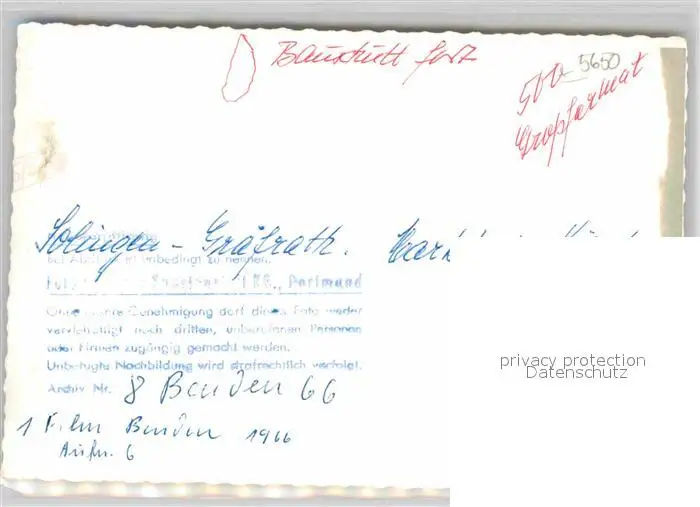 5650
500
Großformat
Solingen - Gräfrath.
bei Abdruck unbedingt zu nennen.
KG., Dortmund
Ohne Genehmigung darf dieses Foto weder
vervielfältigt noch dritten, unberufenen Personen
oder Firmen zugängig gemacht werden.
Unbefugte Nachbildung wird strafrechtlich verfolgt.
Archiv Nr. 8 Benden 66
1 Film Benden 1966
Aufn. 6
privacy protection
Datenschutz